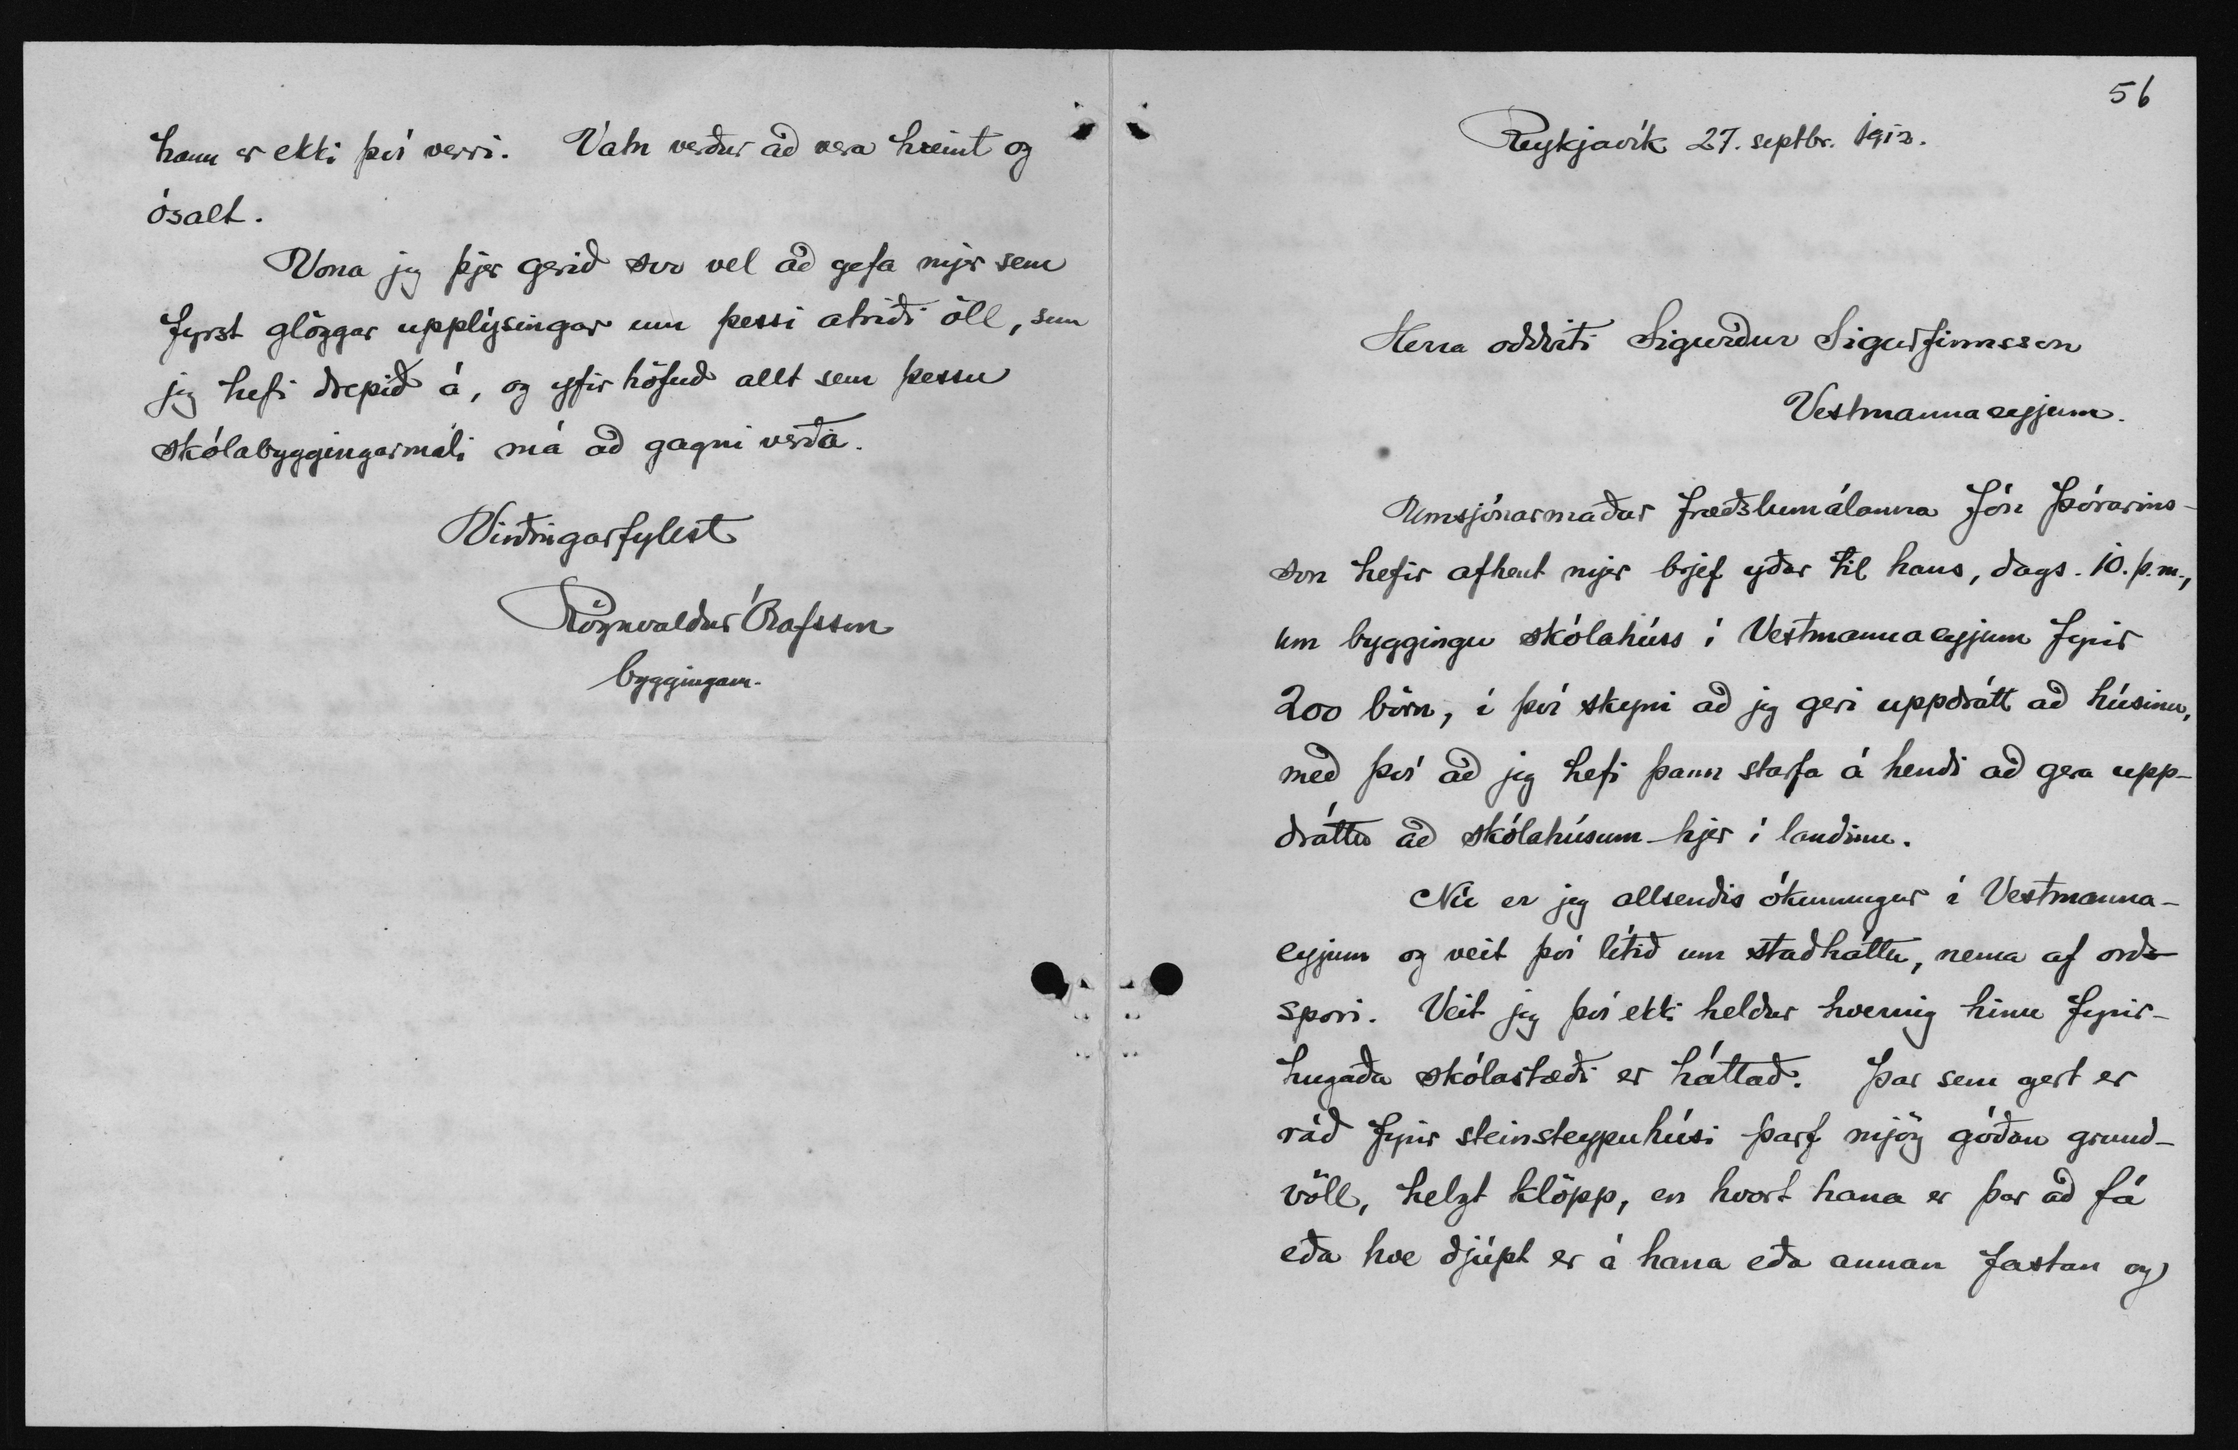 hann er ekki því verri. Vatn verður að vera hreint og
ósalt.
Vona jeg þjer gerið svo vel að gefa mjer sem
fyrst glöggar upplýsingar um þessi atriði öll, sem
jeg hefi drepið á, og yfir höfuð allt sem þessu
skólabyggingarmáli má að gagni verða.
Virðingarfyllst
Rögnvaldur Ólafsson
byggingam.
56
Reykjavík 27. septbr. 1912.
Herra oddviti Sigurður Sigurfinnsson
Vestmannaeyjum.
Umsjónarmaður fræðslumálanna Jón Þórarins-
son hefir afhent mjer brjef yðar til hans, dags. 10. þ.m.,
um byggingu skólahúss í Vestmannaeyjum fyrir
200 börn, í því skyni að jeg geri uppdrátt að húsinu,
með því að jeg hefi þann starfa á hendi að gera upp-
drátta að skólahúsum hjer í landinu.
Nú er jeg allsendis ókunnugur í Vestmanna-
eyjum og veit því lítið um staðháttu, nema af orð-
spori. Veit jeg því ekki heldur hvernig hinu fyrir-
hugaða skólastæði er háttað. Þar sem gert er
ráð fyrir steinsteypuhúsi þarf mjög góðan grund-
völl, helzt klöpp, en hvort hana er þar að fá
eða hve djúpt er á hana eða annan fastan og